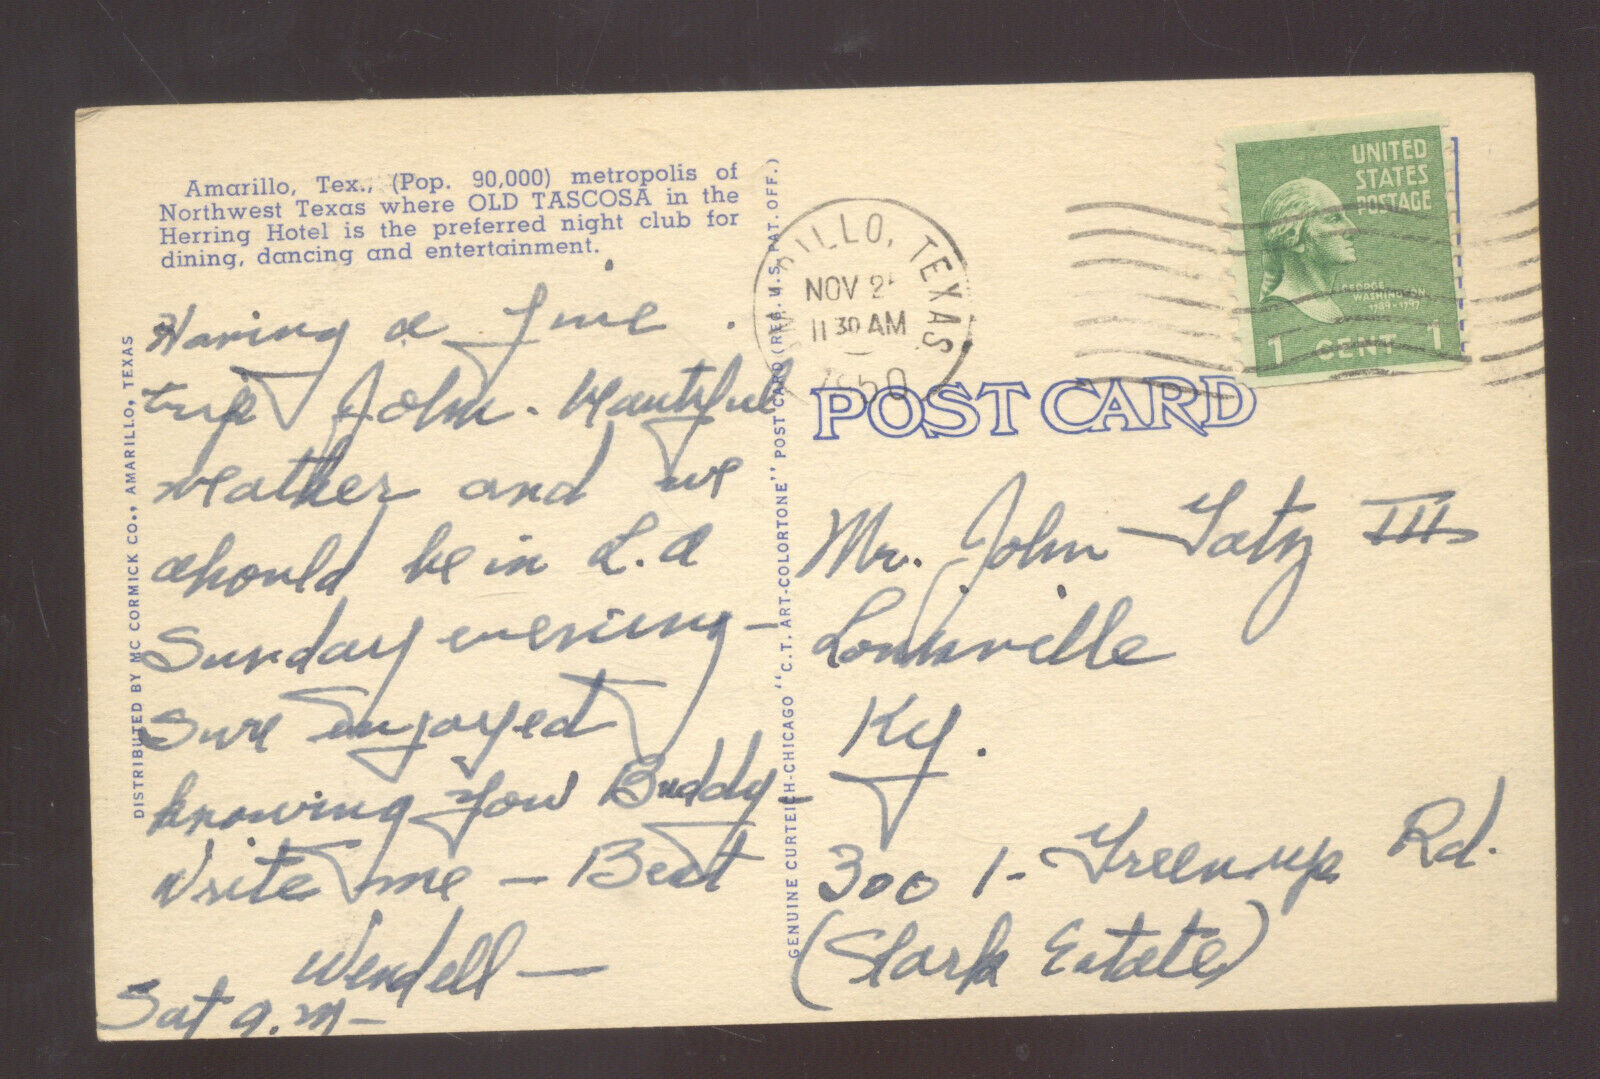 Amarillo, Tex., (Pop. 90,000) metropolis of
Northwest Texas where OLD TASCOSA in the
Herring Hotel is the preferred night club for
dining, dancing and entertainment.
Having a fine
trip John. Beautiful
weather and we
should be in L.A
Sunday evening —
Sure enjoyed
knowing you Buddy —
Write me — Best
Wendell —
Sat a.m —
DISTRIBUTED BY MC CORMICK CO., AMARILLO, TEXAS
GENUINE CURTEICH-CHICAGO "C.T. ART-COLORTONE" POST CARD (REG. U.S. PAT. OFF.)
AMARILLO, TEXAS
NOV 2
11 30 AM
1950
UNITED
STATES
POSTAGE
GEORGE
WASHINGTON
1789-1797
1 CENT 1
POST CARD
Mr. John III
Louisville
Ky.
3001 - Greenup Rd.
(Stark Estate)